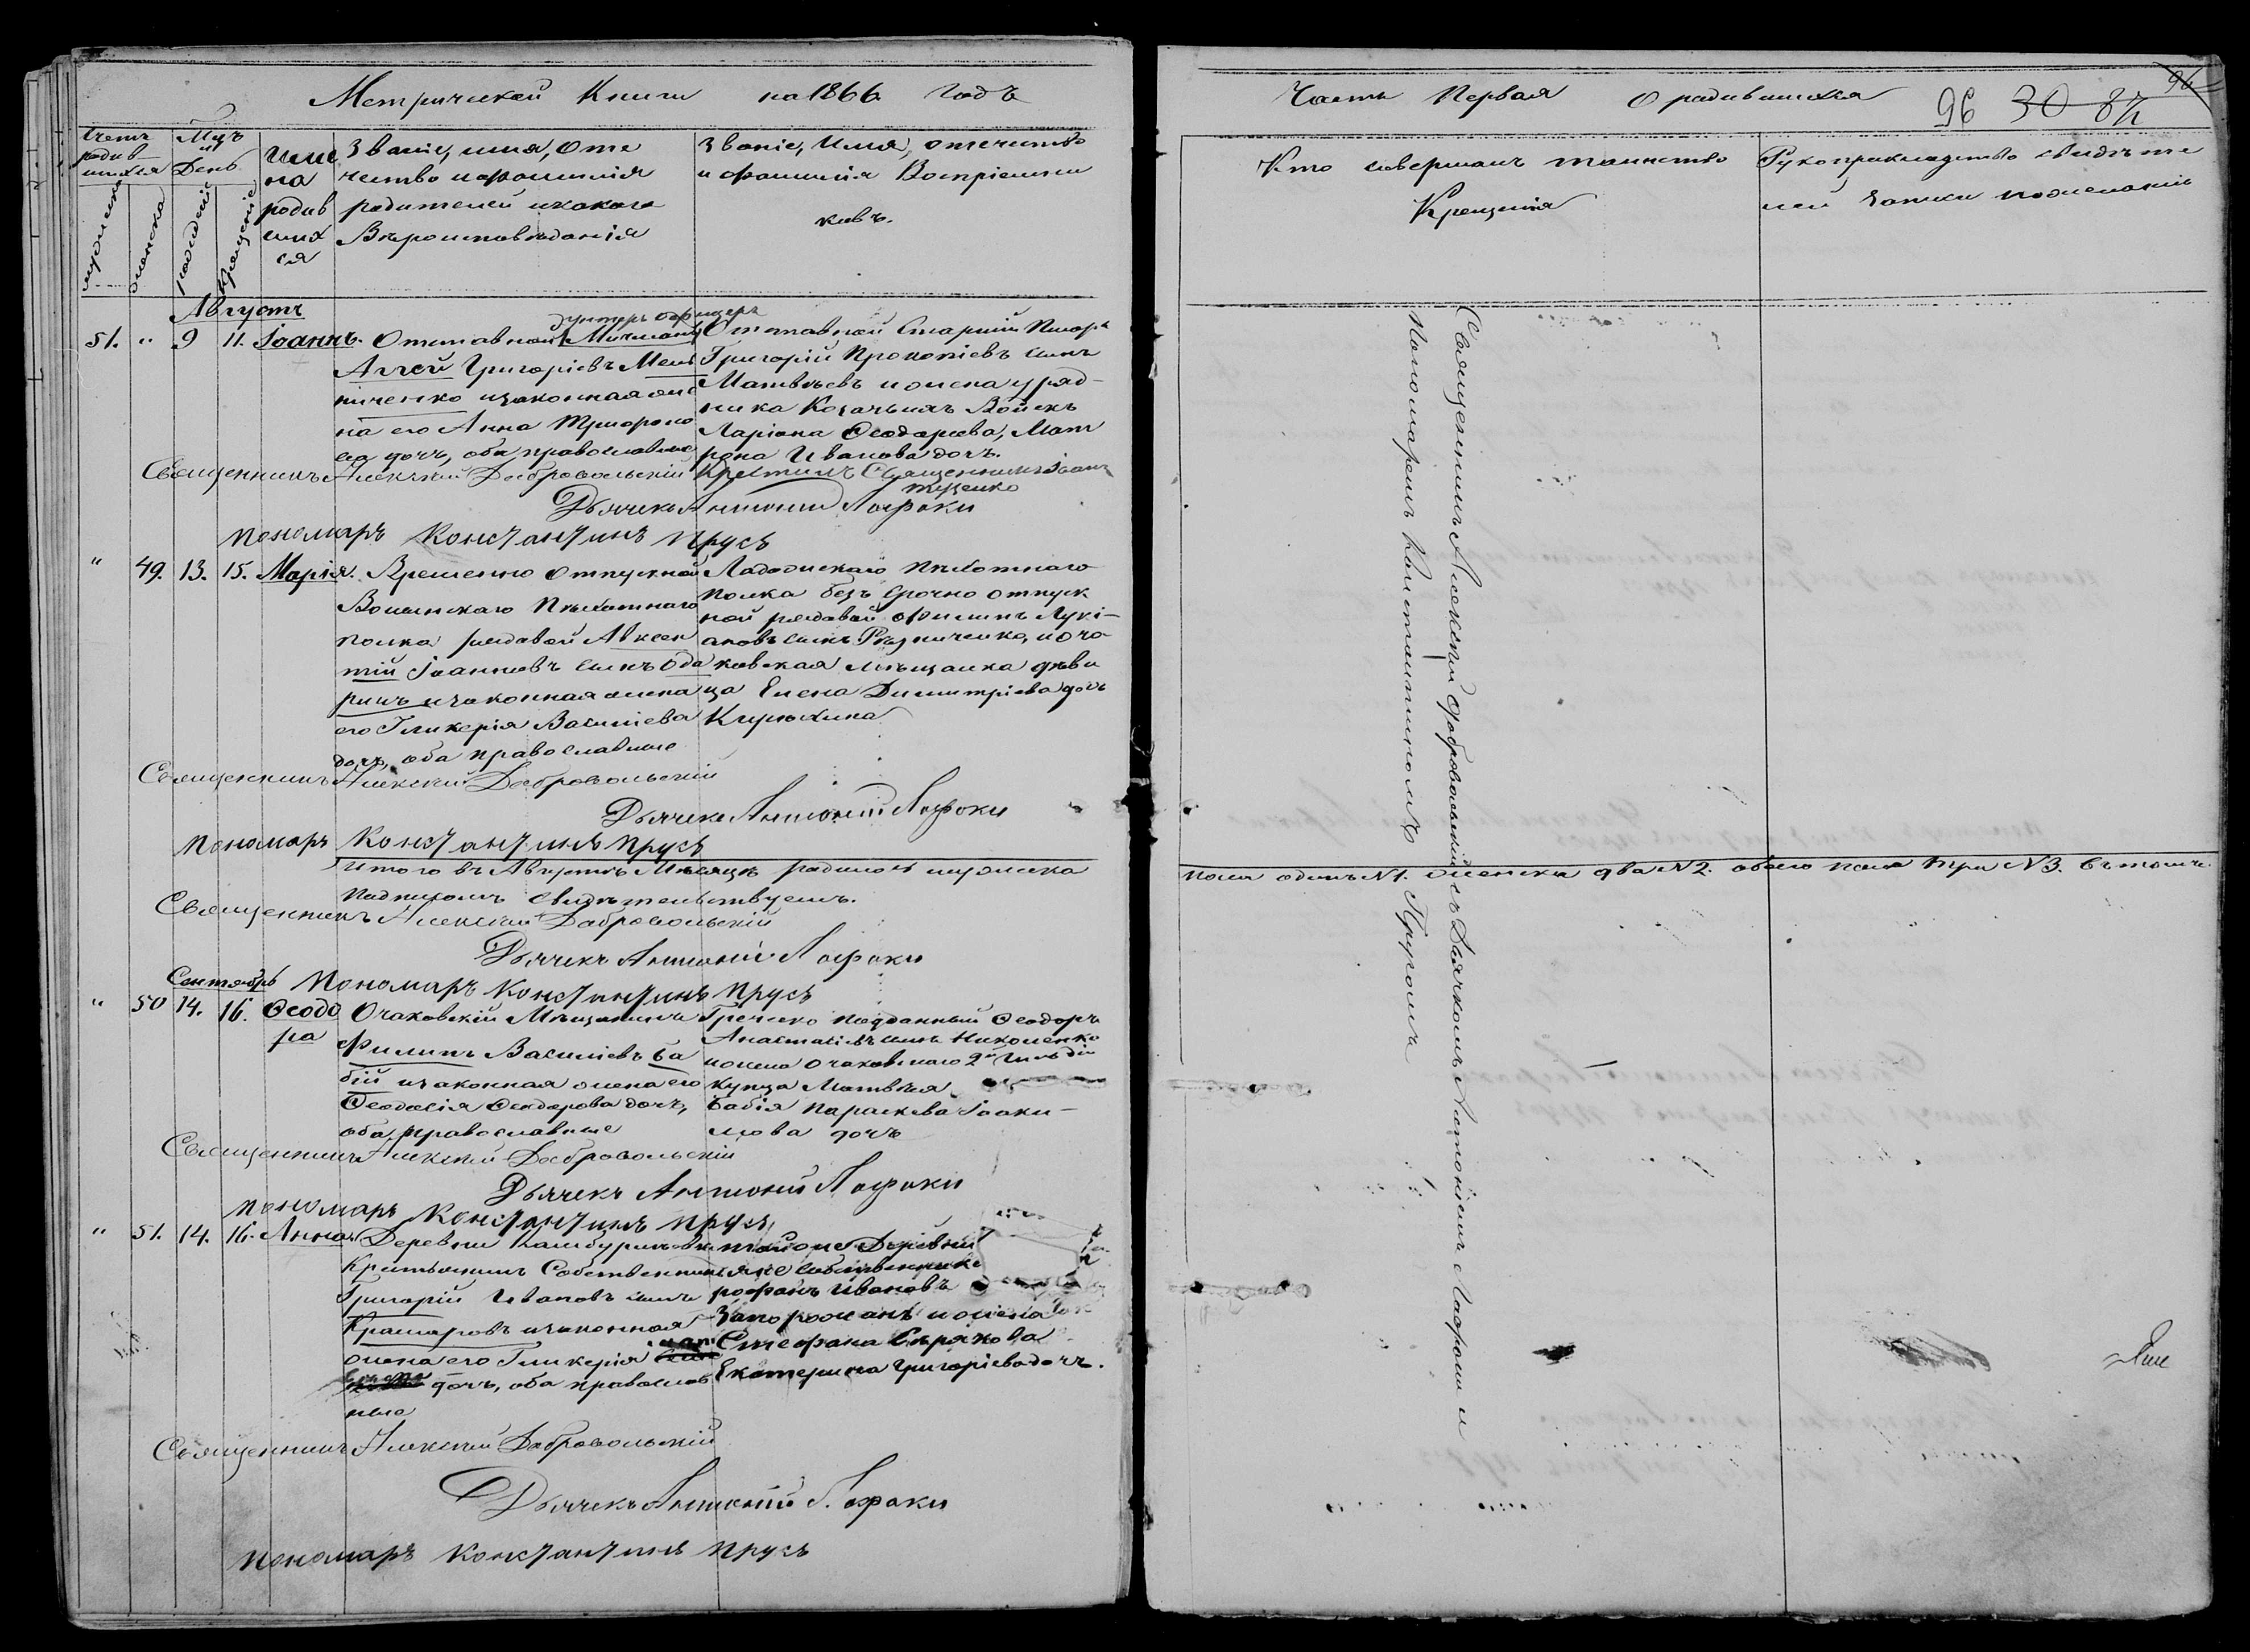 Метрической Книги на 1866 годъ
Счетъ родив-шихся
Мцъ и День
мужеска
женска
рожденія
крещенія
Име на родив ших ся
Званіе, имя, оте
чество и фамилія
родителей и какого
Вѣроисповѣданія
Званіе, Имя, отечество
и фамилія Воспріемни
ковъ.
Августъ
51. " 9 11. Іоаннъ.
Отставной Мичманъ
ѵнтеръ офицеръ
Григоріевъ Мель
ниченко и законная же
на его Анна
ва дочь, оба православные
Отставной Старшій Писарь
Григорій Прокопіевъ сынъ
Матвѣевъ и жена уряд-
ника Козачьихъ Войскъ
Ларіона Ѳеодорова, Мат
рона Иванова дочь.
Священникъ Алексѣй Добровольскій
Крестилъ Священникъ Іоаннъ
Дьячекъ Антоній Лафоки
пономарь Константинъ Прусъ
" 49. 13. 15. Марія.
Временно отпускной
Волынскаго Пѣхотнаго
полка рядовой Авксен
тій Іоанновъ сынъ Ода
ричъ и законная жена
его Гликерія Василіева
дочь, оба православные
Ладожскаго Пѣхотнаго
полка безъ срочно отпуск
ной рядовой Филипъ Лукі-
ановъ сынъ Рѣзниченко, и оча
ковская мѣщанка дѣви
ца Елена Димитріева дочь
Кирюхина
Священникъ Алексѣй Добровольскій
Дьячекъ Антоній Лафоки
пономарь Константинъ Прусъ
Итого въ Августѣ Мѣсяцѣ родилось мужеска
подписомъ свидѣтельствуемъ.
Священникъ Алексѣй Добровольскій
Дьячекъ Антоній Лафоки
Сентябрь
Пономарь Константинъ Прусъ
" 50 14. 16. Ѳеодо
ра
Очаковскій Мѣщанинъ
Филипъ Василіевъ Ба
бій и законная жена его
Ѳеодосія Ѳеодорова дочь,
оба православные
Греческо подданный Ѳеодоръ
Анастасіевъ сынъ Николенко
и жена Очаковскаго 2й Гильдіи
купца Матвѣя
Бабія Параскева Іоаки-
мова дочь
Священникъ Алексѣй Добровольскій
Дьячекъ Антоній Лафоки
пономарь Константинъ Прусъ
" 51. 14. 16. Анна.
Деревни Камбуриловки
Крестьянинъ Собственникъ
Григорій Ивановъ сынъ
Крамаровъ и законная
жена его Гликерія
дочь, оба православ
ные
той же Деревни
Ивановъ
Запорожанъ и жена
Стефана Сѣрякова
Екатерина Григоріева дочь.
Священникъ Алексѣй Добровольскій
Дьячекъ Антоній Лафоки
пономарь Константинъ Прусъ
Часть Первая О родившихся
96 30 87
96
Кто совершалъ таинство
Крещенія
Рукоприкладство свидѣте
лей записи по желанію
Священникъ Алексѣй Добровольскій съ Дьячкомъ Антоніемъ Лафоки и
Пономаремъ Константиномъ Прусомъ
пола одинъ N1. женска два N2. обоего пола три N3. въ томъ